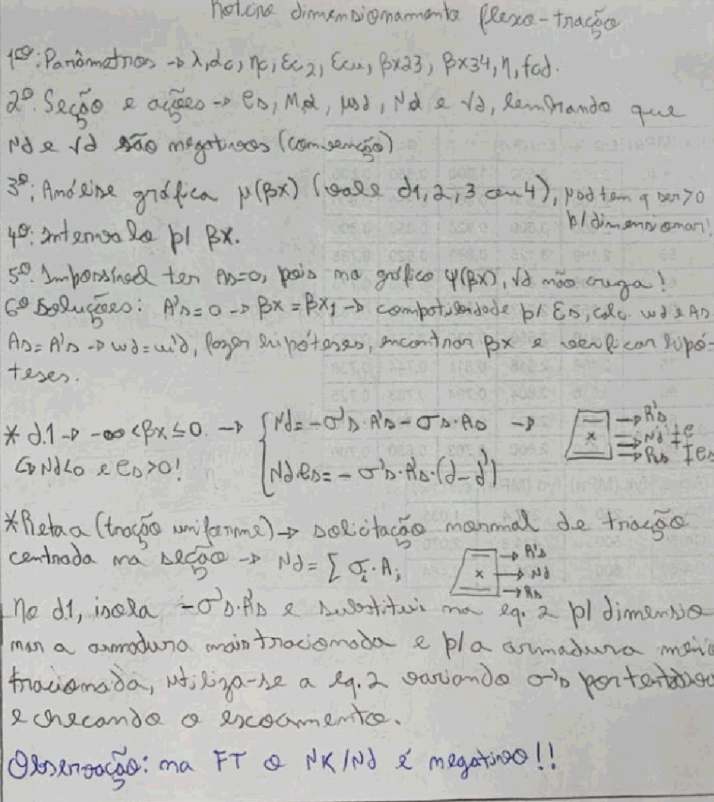 Roteiro dimensionamento flexo-tração
1º: Parâmetros → λ, αc, ηc, Ɛc2, Ɛcu, βx23, βx34, η, fcd.
2º: Seção e ações → es, Md, μsd, Nd e νd, lembrando que
Nd e νd são negativos (convenção)
3º: Análise gráfica μ(βx) (vale d1, 2, 3 ou 4), μsd tem q ser >0
p/ dimensionar!
4º: Intervalo p/ βx.
5º: Impossível ter As=0, pois no gráfico ψ(βx), νd não cruza!
6º Soluções: A's=0 → βx = βx1 → compatibilidade p/ Ɛs, calc. ωd e As
As=A's → ωd=ω'd, fazer hipóteses, encontrar βx e verificar hipó-
teses.
* d.1 → -∞<βx≤0 → { Nd= -σ's·A's - σs·As → → A's
x → Nd ‡e
→ Rs ‡es
↳ Nd<0 e es>0! { Nd es= -σ's·A's·(d-d')
* Reta a (tração uniforme) → solicitação normal de tração
centrada na seção → Nd = Σ σi·Ai → R's
x → Nd
→ Rs
No d1, isola -σ's·A's e substitui na eq. 2 p/ dimensio
nar a armadura mais tracionada e p/ a armadura menos
tracionada, utiliza-se a eq. 2 variando σ's por tentativa
e checando o escoamento.
Observação: na FT o NK/Nd é negativo!!